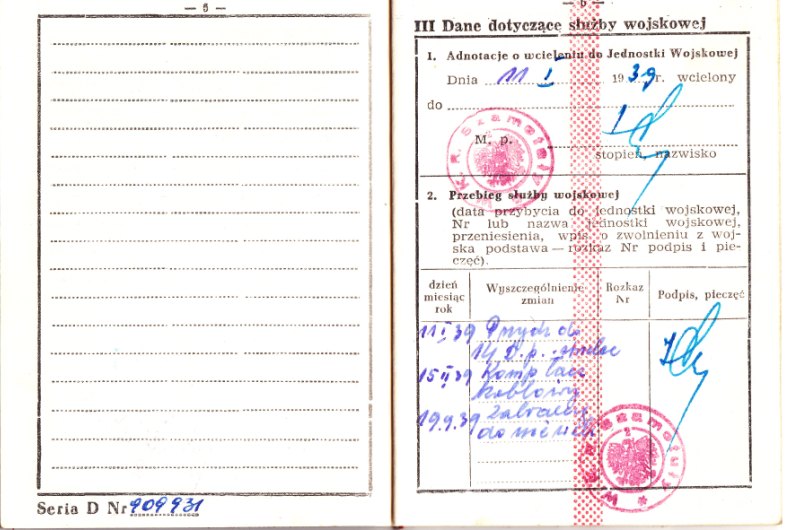 — 5 —
Seria D Nr 909931
III Dane dotyczące służby wojskowej
1. Adnotacje o wcieleniu do Jednostki Wojskowej
Dnia 11 I 1939 r. wcielony
do
M. p.
stopień, nazwisko
W.K.R. Szamotuły
2. Przebieg służby wojskowej
(data przybycia do jednostki wojskowej,
Nr lub nazwa jednostki wojskowej,
przeniesienia, wpis o zwolnieniu z woj-
ska podstawa — rozkaz Nr podpis i pie-
częć).
dzień miesiąc rok
Wyszczególnienie zmian
Rozkaz Nr
Podpis, pieczęć
11 I 39 Przyb do
14 p.p.
15 II 39 Komp łącz
kablowy
19.9.39 Zabrany
do niewoli
W.K.R. Szamotuły